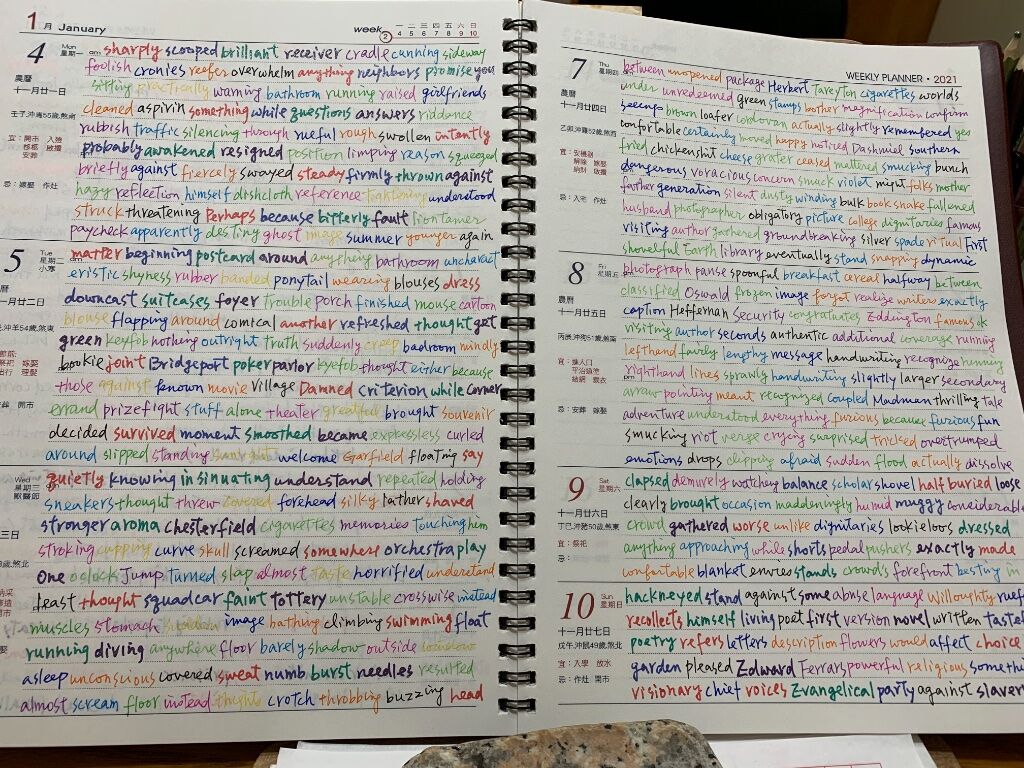 1 月 January week 2 一 二 三 四 五 六 日
4 5 6 7 8 9 10
4 Mon 星期一 am sharply scooped brilliant receiver cradle cunning sideway
foolish cronies reefer overwhelm anything neighbors promise you
農曆 sitting practically warning bathroom running raised girlfriends
十一月廿一日
cleaned aspirin something while questions answers riddance
壬子沖馬55歲,煞南
rubbish traffic silencing through rueful rough swollen intently
宜：開市 入殮
移柩 啟攢
安葬
probably awakened resigned position limping reason squeezed
briefly against fiercely swayed steady firmly thrown against
忌：嫁娶 作灶
hazy reflection himself dishcloth reference lightning understood
struck threatening Perhaps because bitterly fault liontamer
paycheck apparently destiny ghost image summer younger again
5 Tue 星期二 小寒 am matter beginning postcard around anything bathroom uncharact
eristic shyness rubber banded ponytail wearing blouses dress
一月廿二日 downcast suitcases foyer trouble porch finished mouse cartoon
blouse flapping around comical another refreshed thought get
沖羊54歲,煞東
green keyfob nothing outright truth suddenly creep badroom mindly
bookie joint Bridgeport poker parlor keyfob thought either because
those against known movie village Damned criterion while corner
葬 開市
errand prizefight stuff alone theater greatful brought souvenir
decided survived moment smoothed became expressless curled
around slipped standing welcome Garfield floating say
Wed 星期三 quietly knowing insinuating understand repeated holding
sneakers thought threw covered forehead silky lather shaved
三日 stronger aroma Chesterfield cigarettes memories touching him
stroking cupping curve skull screamed somewhere orchestra play
歲,煞北
One o'clock Jump turned slap almost taste horrified understand
least thought squadcar faint tottery unstable crosswise instead
muscles stomach image bathing climbing swimming float
running diving anywhere floor barely shadow outside
asleep unconscious covered sweat numb burst needles resulted
almost scream floor instead thighs crotch throbbing buzzing head
WEEKLY PLANNER • 2021
7 Thu 星期四 between unopened package Herbert Tareyton cigarettes worlds
under unredeemed green stamps bother magnification confirm
農曆
十一月廿四日
seeonfo brown loafer cordovan actually slightly remembered yes
乙卯沖雞52歲,煞西
comfortable certainly moved happy noticed Dashmiel southern
宜：安機械
解除 嫁娶
納財 啟攢
fried chickenshit cheese grater ceased mattered smucking bunch
dangerous voracious concern smuck violet might folks mother
忌：入宅 作灶
father generation silent dusty winding bulk book snake fullened
husband photographer obligatory picture college dignitaries famous
visiting author gathered groundbreaking silver spade virtual first
shovelful Earth library eventually stand snapping dynamic
8 Fri 星期五 photograph pause spoonful breakfast cereal halfway between
classified Oswald frozen image forgot realize writer exactly
農曆
十一月廿五日
caption Heffernan Security congratulates Eddington famous ok
丙辰沖狗51歲,煞南
visiting author seconds authentic additional coverage running
lefthand fairly lengthy message handwriting recognize running
宜：進人口
平治道塗
結網 裁衣
righthand lines sprawly handwriting slightly larger secondary
arrow pointing meant recognized coupled Madman thrilling tale
忌：安葬 嫁娶
adventure understood everything furious because furious fun
smucking riot verge crying surprised tricked overtrumped
emotions drops clipping afraid sudden flood actually dissolve
9 Sat 星期六 clapsed demurely watching balance scholar shovel half buried loose
十一月廿六日
clearly brought occasion maddeningly humid muggy considerable
丁巳沖豬50歲,煞東
crowd gathered worse unlike dignitaries lookieloos dressed
宜：祭祀
忌：
anything approaching while shorts pedal pushers exactly made
comfortable blanket envies stands crowd's forefront besting in
10 Sun 星期日 hackneyed stand against some abuse language Willoughty ruef
recollects himself living poet first version novel written taste
十一月廿七日
戊午沖鼠49歲,煞北
poetry refers letters description flowers would affect choice
宜：入學 放水
garden pleased Edward Ferrars powerful religious someth
忌：作灶 開市
visionary chief voices Evangelical party against slaver